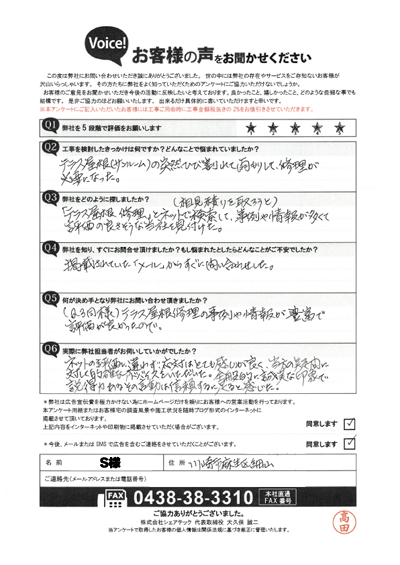 Voice!
お客様の声をお聞かせください
この度は弊社にお問い合わせいただき誠にありがとうございました。 世の中には弊社の存在やサービスをご存知ないお客様が
沢山いらっしゃいます。 その方たちに弊社をよく知っていただくためのアンケートにご協力いただけないでしょうか。
お客様のご意見をお聞かせいただき今後の活動に反映したいと考えております。良かったこと、嬉しかったこと、どのような些細な事でも
結構です。 是非ご協力のほどお願いいたします。 出来るだけ具体的に書いていただけますと幸いです。
※本アンケートにご記入いただいたお客様には工事ご用命時に工事金額税抜きの 2% のお値引きさせていただきます。
Q1 弊社を 5 段階で評価をお願いします ★ ★ ★ ★ ★
Q2 工事を検討したきっかけは何ですか？どんなことで悩まれていましたか？
テラス屋根(サンルーム)の突然ひび割れて雨かして、修理が
必要になった。
Q3 弊社をどのように探しましたか？ (相見積りを取ろうと)
「テラス屋根 修理」とネットで検索して、事例や情報が多くて
評価の良さそうな当社を見付けた。
Q4 弊社を知り、すぐにお問合せ頂けましたか？もし悩まれたとしたらどんなことがご不安でしたか？
掲載されていた「メール」からすぐに問い合わせした。
Q5 何が決め手となり弊社にお問い合わせ頂きましたか？
(Q.3同様) テラス屋根修理の事例や情報が豊富で
評価が良かったので。
Q6 実際に弊社担当者がお伺いしていかがでしたか？
ネットの評価に違わず、応対はとても感じが良く、当方の質問に
対して的確なアドバイスをいただいた。全般的に誠実な印象で、
説得力があるその言動は信頼するに足ると感じた。
＊弊社は広告宣伝費を極力かけない為にホームページだけを頼りにお客様への営業活動を行っております。
本アンケート用紙またはお客様宅の調査風景や施工状況を随時ブログ形式のインターネットに
掲載させて頂いております。
上記内容をインターネットや印刷物に掲載させていただく場合がございます。 同意します ✓
＊今後、メールまたは DMS で広告を含むご連絡をさせていただくことがございます。 同意します ✓
名 前 S様 住 所 川崎市麻生区細山
ご連絡先（メールアドレスまたは電話番号）
FAX 0438-38-3310 本社直通 FAX 番号
ご協力ありがとうございました。
株式会社シェアテック 代表取締役 大久保 誠二
※アンケートで取得したお客様の個人情報は関係法規に基づき厳正に管理いたします。
高田